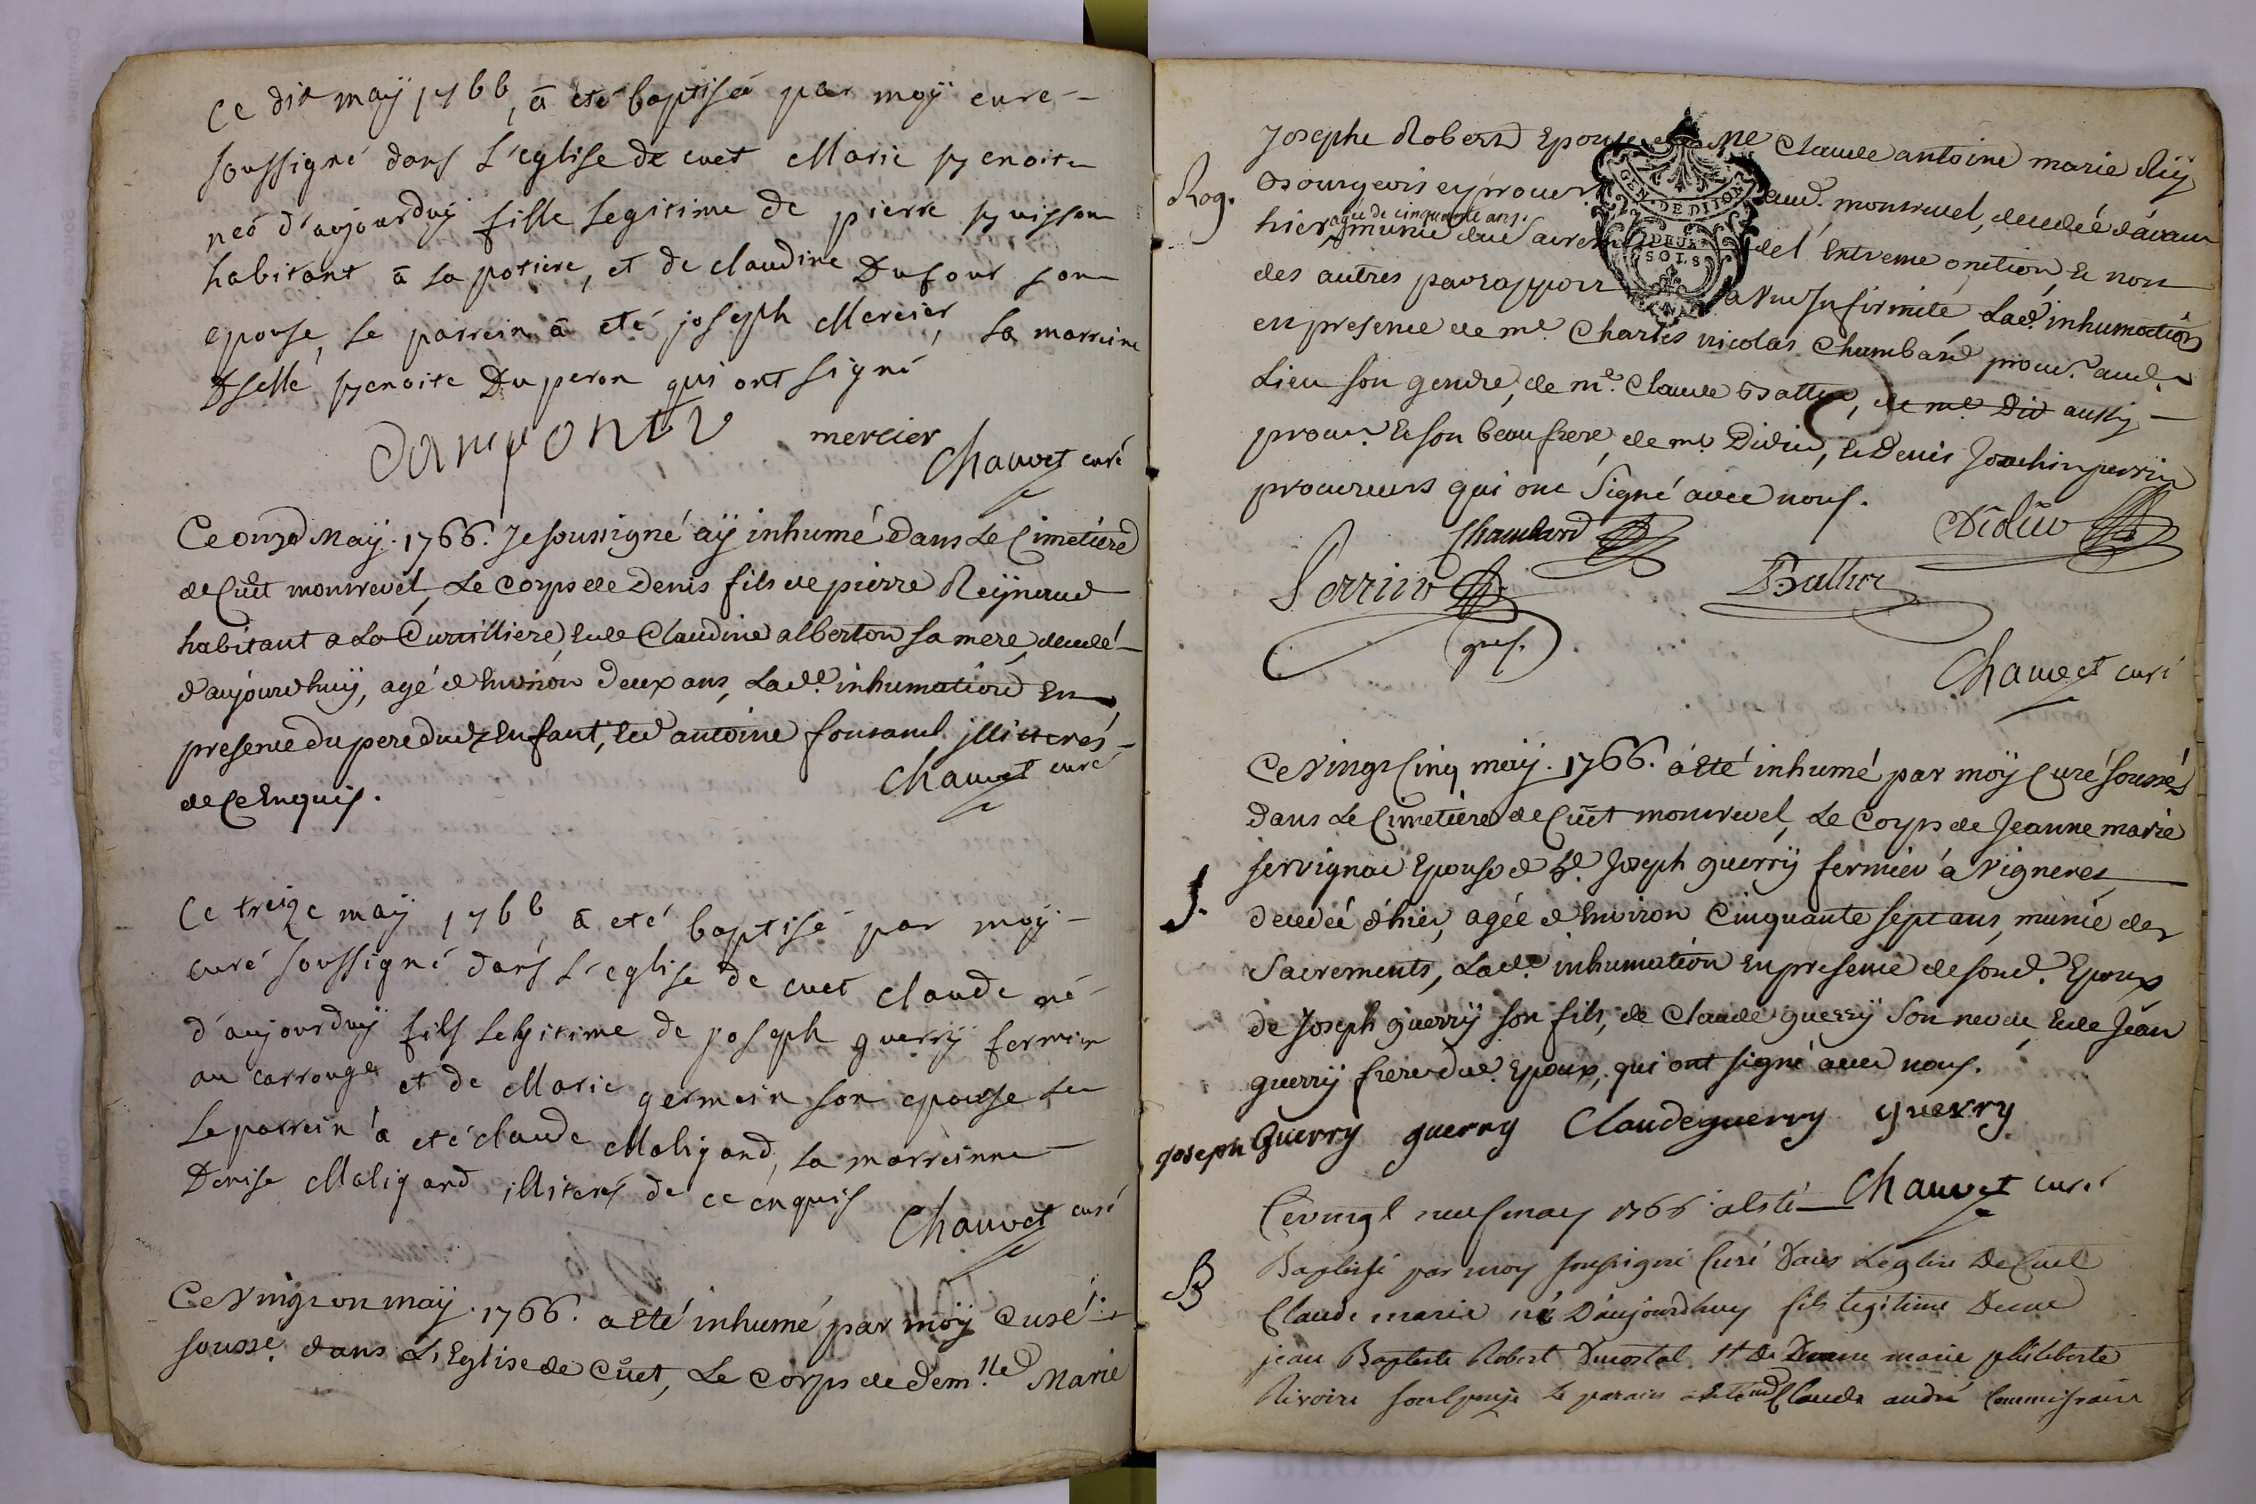 Ce dix maÿ 1766, a eté baptisée par moÿ curé
soussigné dans L'eglise de cuet Marie benoite
neé d'aujourduÿ fille Legitime de pierre buisson
habitant a la potiere, et de claudine Dufour son
epouse, Le parrein a eté joseph Mercier, La marreine
Dselle benoite Duperon qui ont signé
mercier
Chauvet curé
Ce onze Maÿ. 1766. Je soussigné aÿ inhumé dans Le Cimetière
de Cuet montrevel, Le Corps de Denis fils de pierre Reÿnaud
habitant a La Curtilliere, et de Claudine alberton sa mere, decedé
d'aujourdhuÿ, agé d'Environ deux ans, Lad.e inhumation En
presence du pere dud. Enfant, et d'antoine illiterés
de Ce Enquis.
Chauvet curé
Ce treize maÿ 1766 a eté baptisé par moÿ
curé soussigné dans L'eglise de cuet claude né
d'aujourduÿ fils Legitime de joseph guerrÿ fermier
au carrouge et de Marie germain son epouse
Le parrein a eté claude Maligand, La marreinne
Denise Maligand illiterés de ce enquis
Chauvet curé
Ce Vingt un maÿ. 1766. a Eté inhumé par moÿ Curé
soussé. dans L'Eglise de Cuet, Le Corps de dem.lle Marie
Josephe Robert Epouse de me Claude antoine marie Rÿ
Rog.
Bourgeois et procur. aud. montrevel, decedeé d'avant
hier agée de cinquante ans. munie du Sacrem de l'Extreme onction, et non
des autres par rapport a Infirmité Lad.e inhumation
GEN. DE DIJON
DEUX
SOLS
en presence de me. Charles nicolas Chambard procur. aud.
Lieu son gendre, de me. Claude Battur, de me Did aussy
procur. et son beaufrere, de me. Didier, et Denis Joachin perrin
procureurs qui ont Signé avec nous.
Chambard
Didier
Perrin
Battur
Chauvet curé
Ce Vingt Cinq maÿ. 1766. a Eté inhumé par moÿ Curé soussé.
dans Le Cimetière de Cuet montrevel, Le Corps de Jeanne marie
servignat Epouse de Sr. Joseph guerrÿ fermier a Vigneres
J.
decedeé d'hier, agée d'Environ Cinquante sept ans, munie des
Sacrements, Lad.e inhumation En presence de sond. Epoux
de Joseph guerrÿ son fils, de Claude guerrÿ Son neveu, et de Jean
guerrÿ frere dud. Epoux, qui ont signé avec nous.
joseph guerry guerry Claudeguerry guerry
Chauvet curé
Ce vingt neuf may 1766 a été
B
Baptisé par moy soussigné Curé Dans L'église De Cuet
Claude marie né D'aujourdhuy fils legitime De me
jean Baptiste Robert et De marie philiberte
Rivoire son epouse Le parain a été Claude andré Commissaire